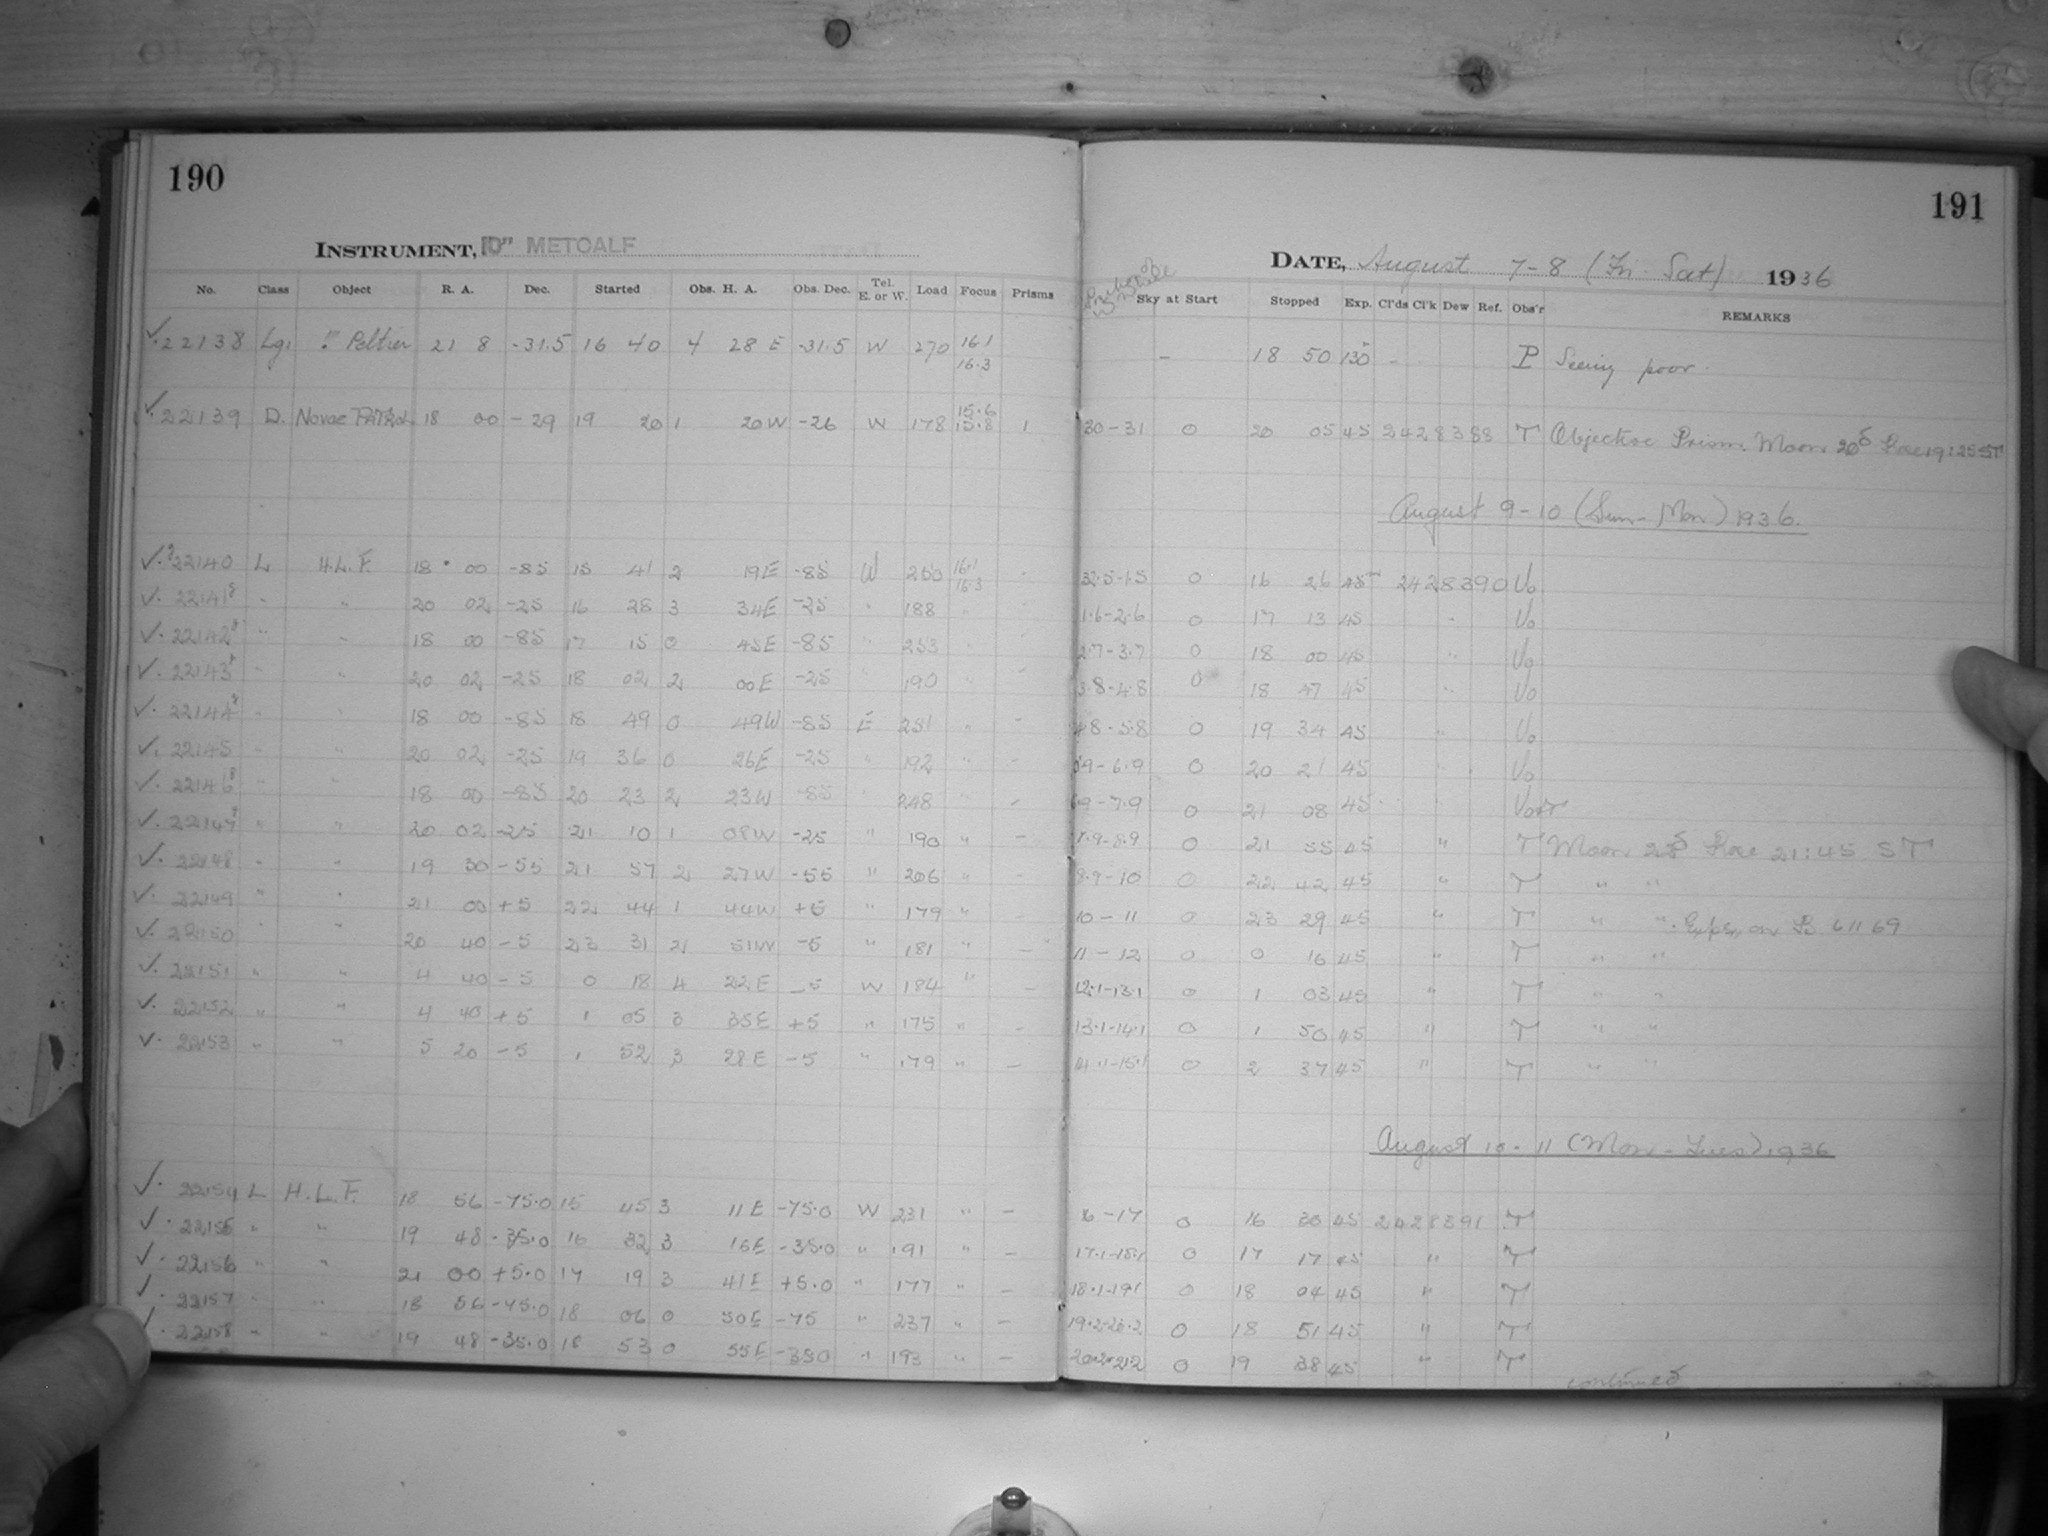 190
191
INSTRUMENT, 10" METCALF
DATE, August 7-8 (Fri Sat) 1936
No. Class Object R. A. Dec. Started Obs. H. A. Obs. Dec. Tel. E. or W. Load Focus Prisms Sky at Start Stopped Exp. Cl'ds Cl'k Dew Ref. Obs'r REMARKS
✓. 22138 Lg. Peltier 21 8 -31.5 16 40 4 28 E -31.5 W 270 16.1 16.3 - 18 50 130 - P Seeing poor.
✓. 22139 D. Novae PATROL 18 00 -29 19 20 1 20 W -26 W 178 15.6 15.8 1 30-31 0 20 05 45 2428388 T Objective Prism. Moon 19:25 ST
August 9-10 (Sun-Mon) 1936.
✓. 22140 L H.L.F. 18 00 -85 15 41 2 19E -85 W 250 16.1 16.3 - 32.5-1.5 0 16 26 45 2428390 Vo
✓. 22141 " " 20 02 -25 16 28 3 34E -25 " 188 " - 1.6-2.6 0 17 13 45 " Vo
✓. 22142 " " 18 00 -85 17 15 0 45E -85 " 253 " - 2.7-3.7 0 18 00 45 " Vo
✓. 22143 " " 20 02 -25 18 02 2 00E -25 " 190 " - 3.8-4.8 0 18 47 45 " Vo
✓. 22144 " " 18 00 -85 18 49 0 49W -85 E 251 " - 4.8-5.8 0 19 34 45 " Vo
✓. 22145 " " 20 02 -25 19 36 0 26E -25 " 192 " - 5.9-6.9 0 20 21 45 " Vo
✓. 22146 " " 18 00 -85 20 23 2 23W -85 " 248 " - 6.9-7.9 0 21 08 45 "
✓. 22147 " " 20 02 -25 21 10 1 08W -25 " 190 " - 7.9-8.9 0 21 55 45 " T Moon 21:45 ST
✓. 22148 " " 19 30 -55 21 57 2 27W -55 " 206 " - 8.9-10 0 22 42 45 " T " "
✓. 22149 " " 21 00 +5 22 44 1 44W +5 " 179 " - 10-11 0 23 29 45 " T " ". Exps. on B 61169
✓. 22150 " " 20 40 -5 23 31 2 51W -5 " 181 " - 11-12 0 0 16 45 " T " "
✓. 22151 " " 4 40 -5 0 18 4 22E -5 W 184 " - 12.1-13.1 0 1 03 45 " T " "
✓. 22152 " " 4 40 +5 1 05 3 35E +5 " 175 " - 13.1-14.1 0 1 50 45 " T " "
✓. 22153 " " 5 20 -5 1 52 3 28E -5 " 179 " - 14.1-15.1 0 2 37 45 " T " "
August 10-11 (Mon-Tues) 1936
✓. 22154 L H.L.F. 18 56 -75.0 15 45 3 11E -75.0 W 231 " - 16-17 0 16 30 45 2428391 T
✓. 22155 " " 19 48 -35.0 16 32 3 16E -35.0 " 191 " - 17.1-18.1 0 17 17 45 " T
✓. 22156 " " 21 00 +5.0 17 19 3 41E +5.0 " 177 " - 18.1-19.1 0 18 04 45 " T
✓. 22157 " " 18 56 -75.0 18 06 0 50E -75 " 237 " - 19.2-20.2 0 18 51 45 " T
✓. 22158 " " 19 48 -35.0 18 53 0 55E -35.0 " 193 " - 20.2-21.2 0 19 38 45 " T
continued